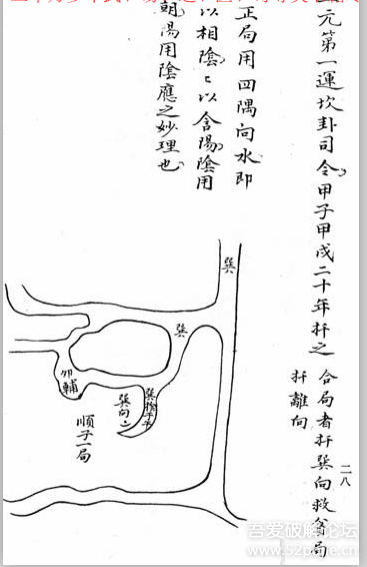 元第一運坎卦司令甲子甲戌二十年扦之
合局者扦巽向救貧局
扦離向
二八
正局用四隅向水即
以相陰〻以含陽陰用
朝陽用陰應之妙理也
巽
巽
卯輔
巽向
順子一局
吾爱破解论坛
www.52pojie.cn